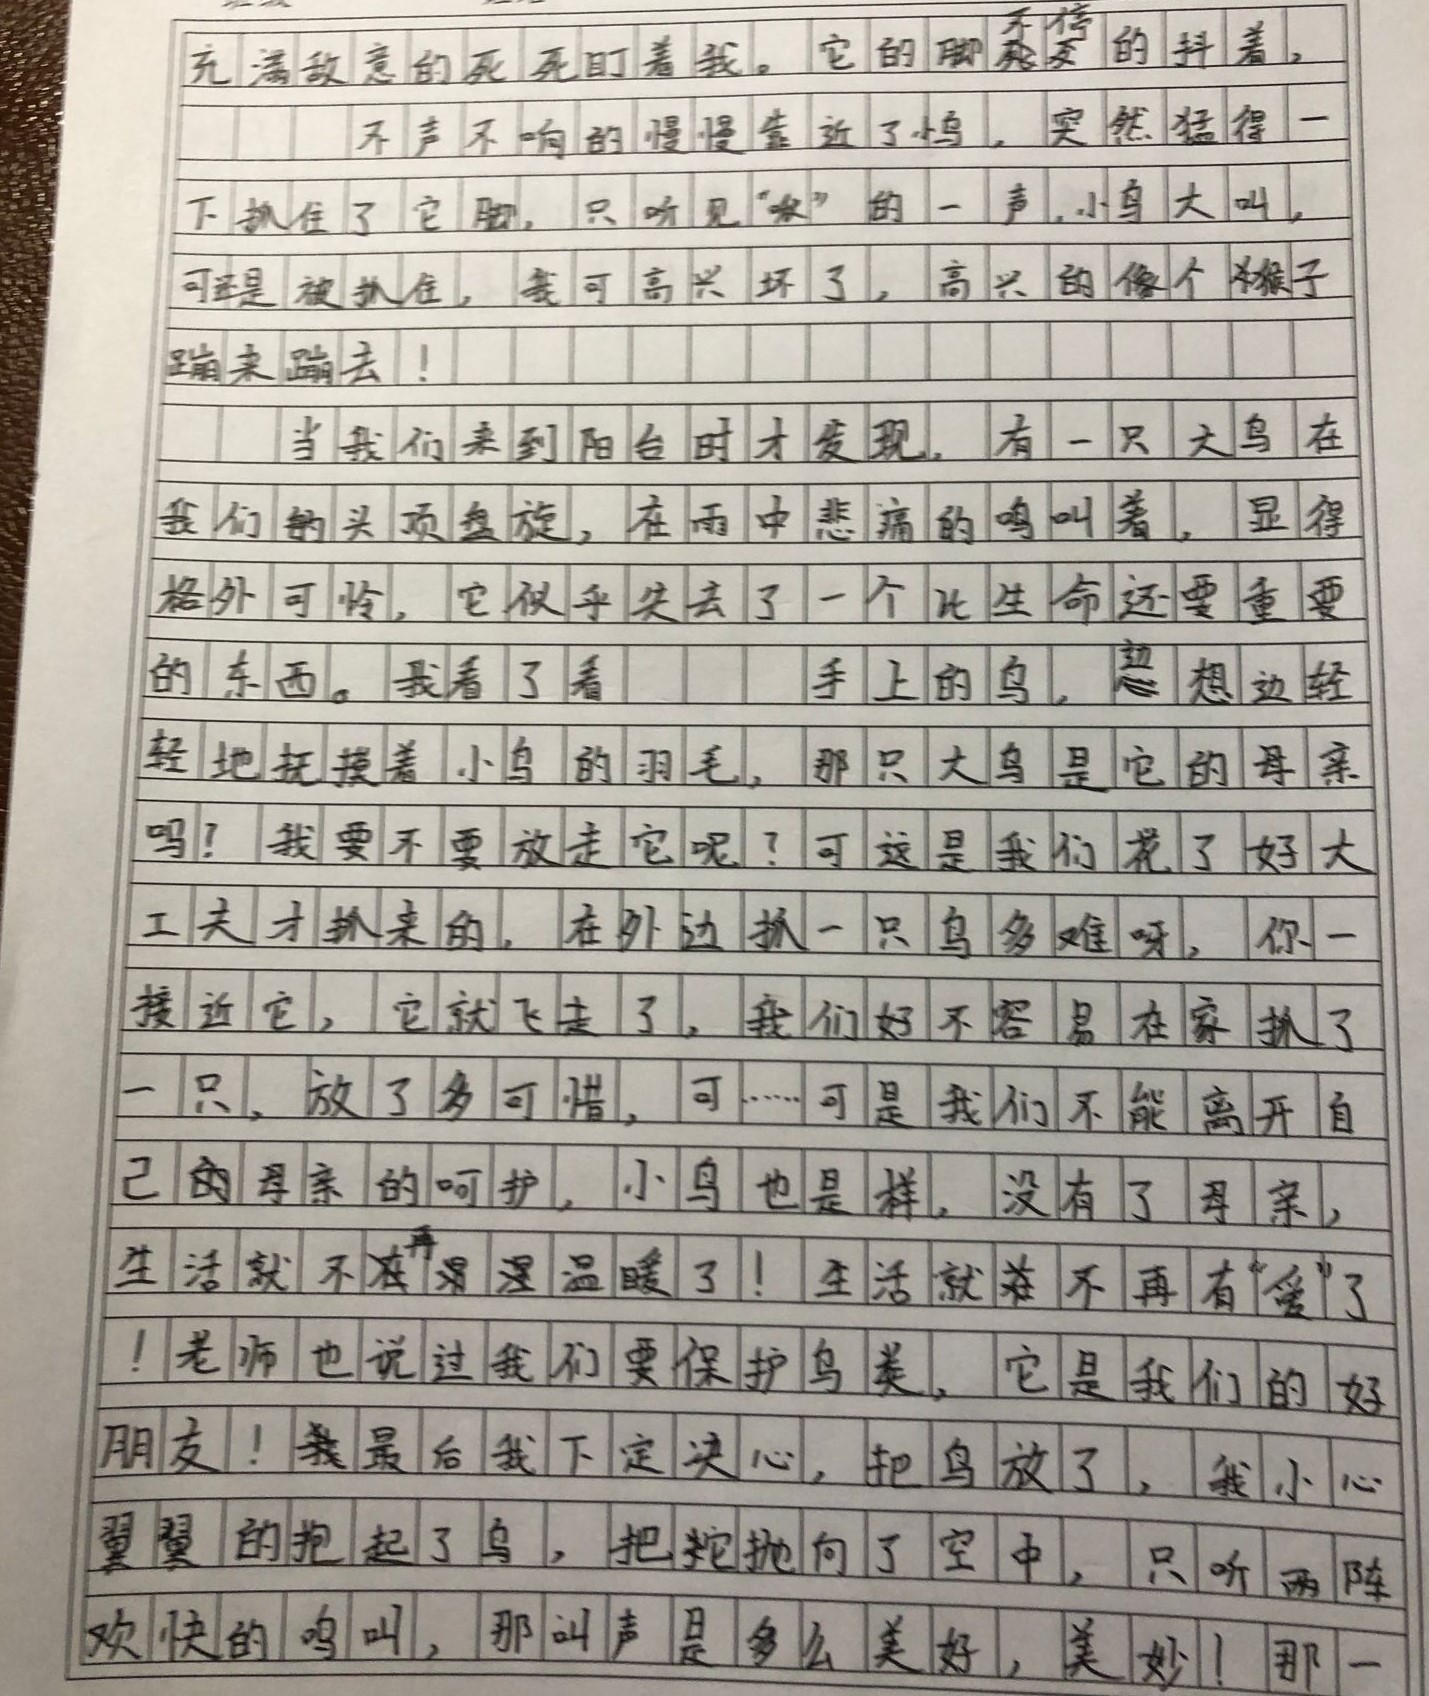 充满敌意的死死盯着我。它的脚不停的抖着,
不声不响的慢慢靠近了小鸟,突然猛得一
下抓住了它脚,只听见“啾”的一声,小鸟大叫,
可还是被抓住,我可高兴坏了,高兴的像个小猴子
蹦来蹦去!
当我们来到阳台时才发现,有一只大鸟在
我们的头顶盘旋,在雨中悲痛的鸣叫着,显得
格外可怜,它似乎失去了一个比生命还要重要
的东西。我看了看手上的鸟,边想边轻
轻地抚摸着小鸟的羽毛,那只大鸟是它的母亲
吗?我要不要放走它呢?可这是我们花了好大
工夫才抓来的,在外边抓一只鸟多难呀,你一
接近它,它就飞走了,我们好不容易在家抓了
一只,放了多可惜,可……可是我们不能离开自
己的母亲的呵护,小鸟也是样,没有了母亲,
生活就不再温暖了!生活就不再有“爱”了
!老师也说过我们要保护鸟类,它是我们的好
朋友!最后我下定决心,把鸟放了,我小心
翼翼的抱起了鸟,把它抛向了空中,只听两阵
欢快的鸣叫,那叫声是多么美好,美妙!那一